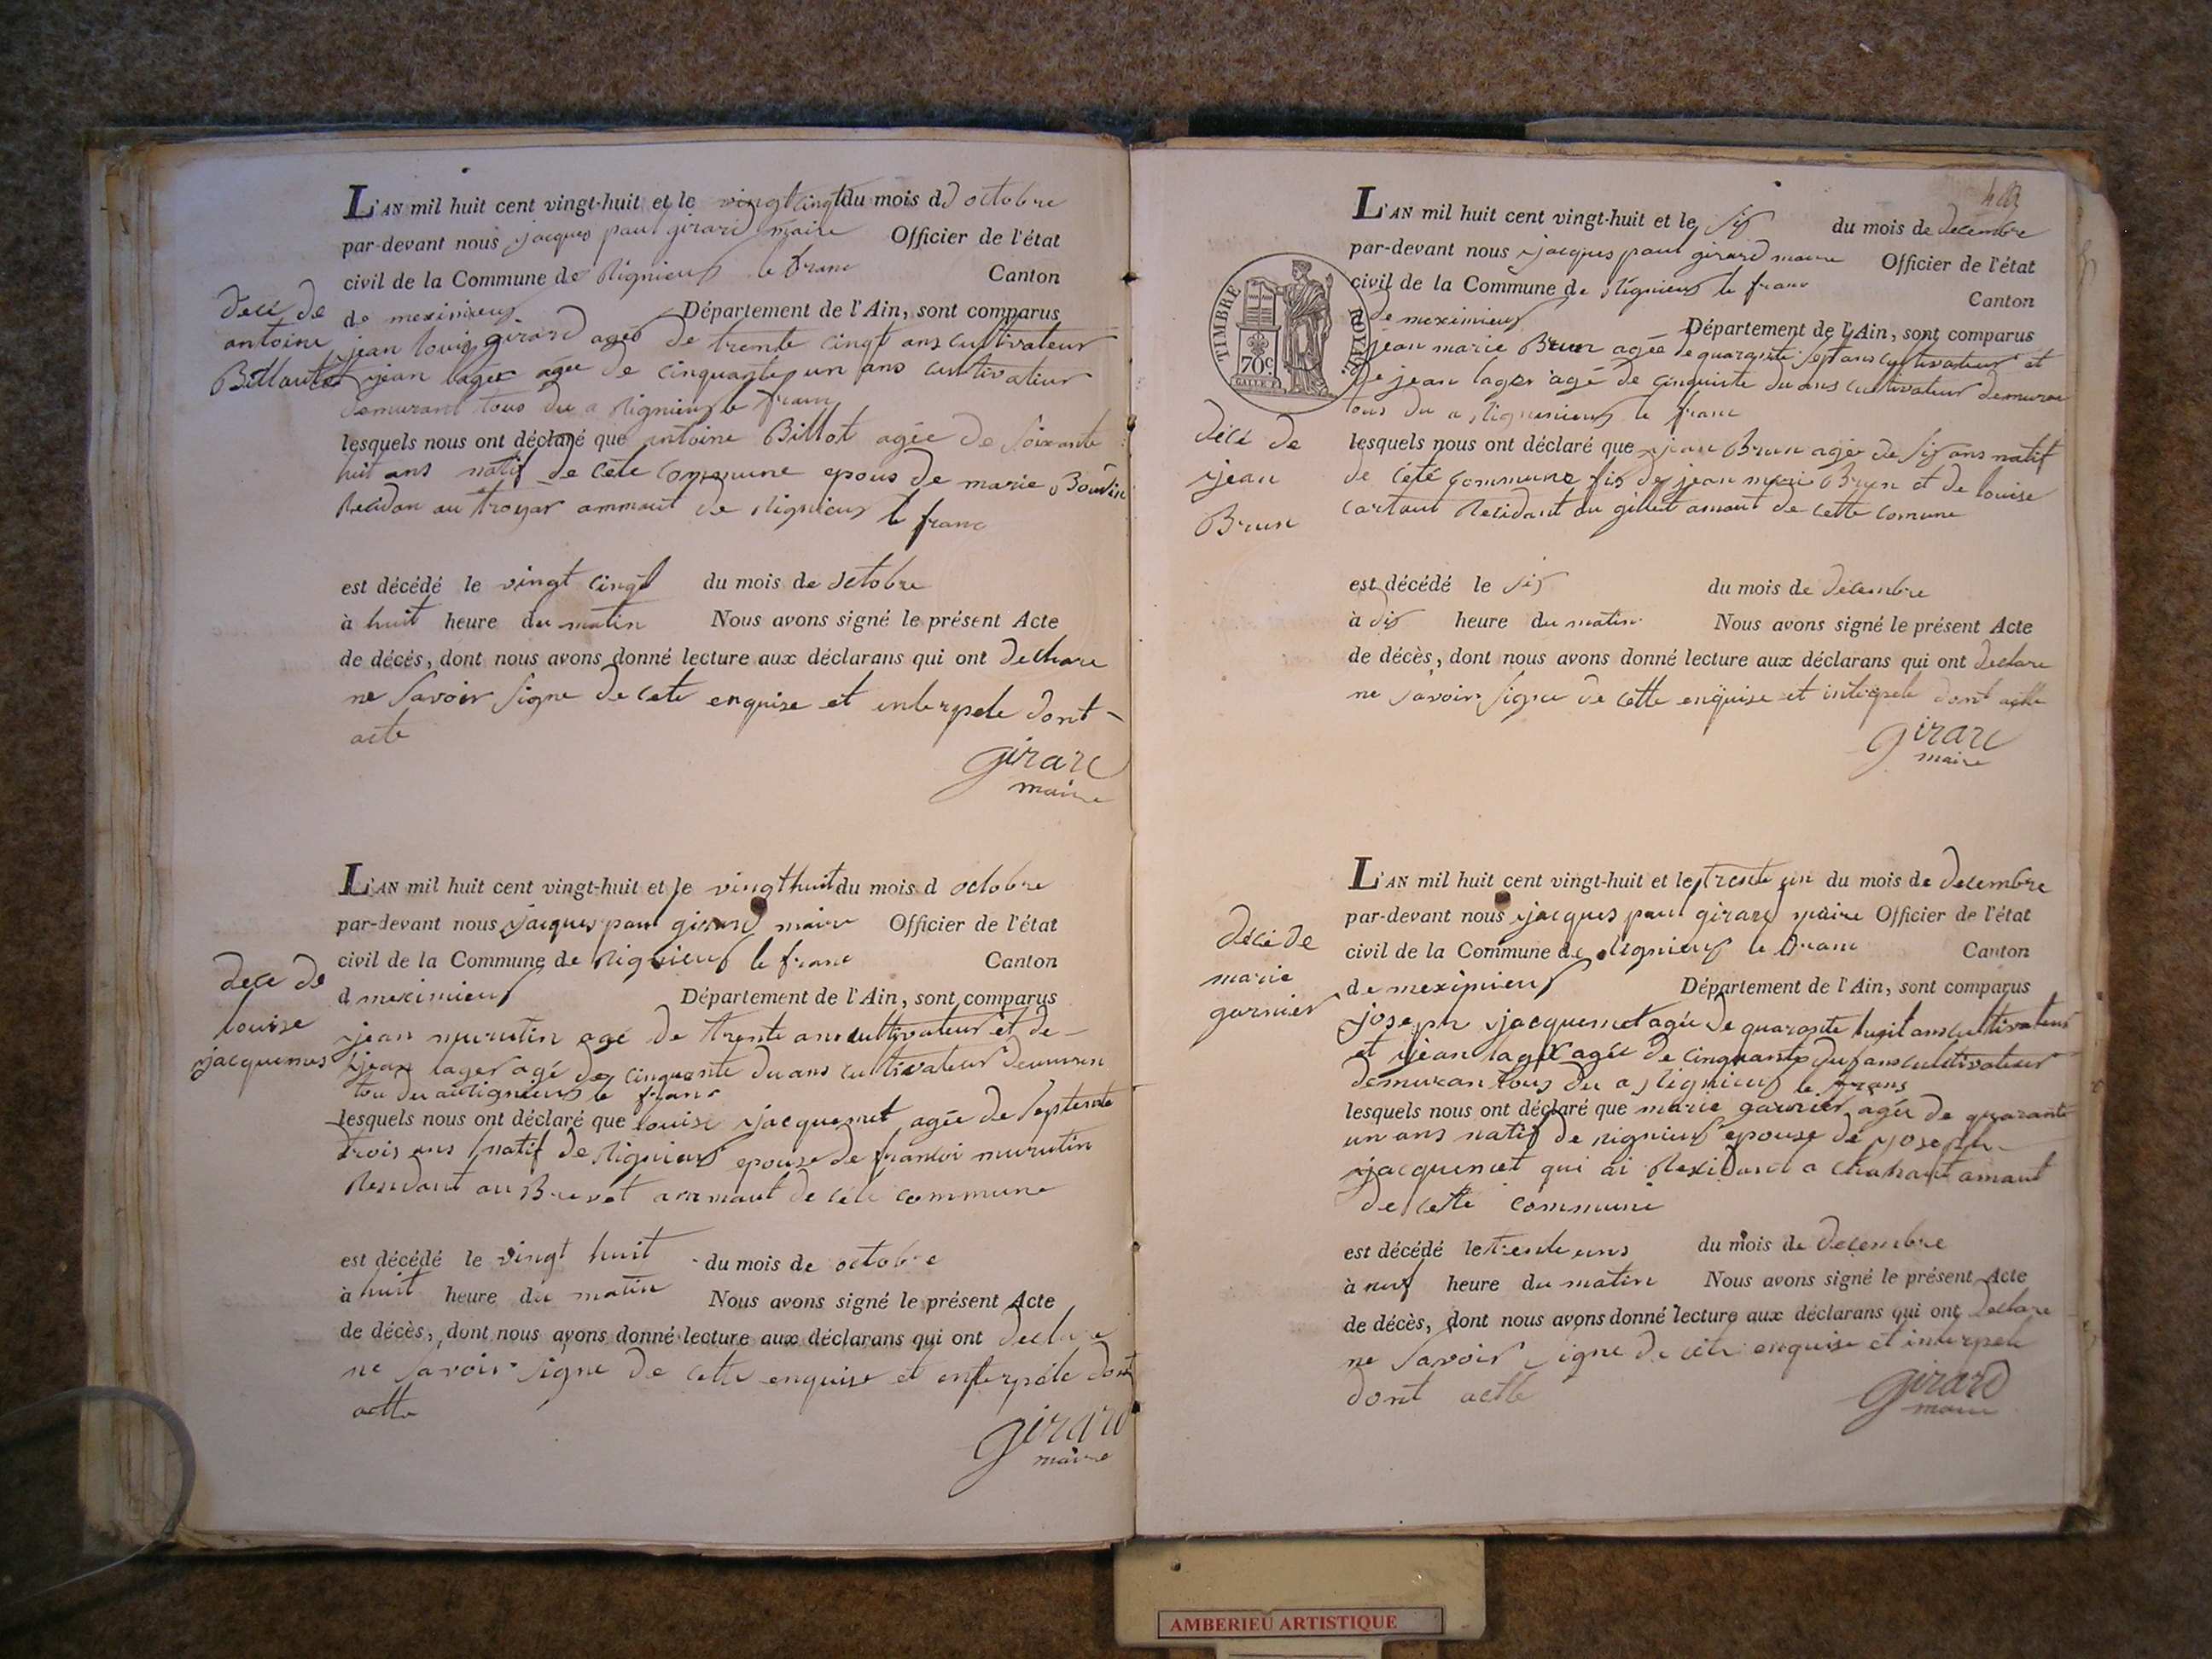 L'AN mil huit cent vingt-huit et le vingt cingt du mois d octobre
par-devant nous jacques paul girard maire Officier de l'état
civil de la Commune de Rignieux le franc Canton
de meximieux Département de l'Ain, sont comparus
jean louis girard agée de trente cingt ans cultivateur
et jean lager agée de cinquante un ans cultivateur
demurant tous du a Rignieux le franc
lesquels nous ont déclaré que antoine Billot agée de soixante
huit ans natif de cete commune epous de marie Boudin
Residan au troyar ammaut de Rignieux le franc
est décédé le vingt cingt du mois de octobre
à huit heure du matin Nous avons signé le présent Acte
de décès, dont nous avons donné lecture aux déclarans qui ont declare
ne savoir signe de cete enquise et enterpele dont
acte
girard
maire
décé de
antoine
Billout
L'AN mil huit cent vingt-huit et le vingt huit du mois d octobre
par-devant nous jacques paul girard maire Officier de l'état
civil de la Commune de Rignieux le franc Canton
d meximieux Département de l'Ain, sont comparus
jean murutin agé de trente ans cultivateur et de
jean lager agé de cinquante du ans cultivateur demuran
tou du a Rignieux le franc
lesquels nous ont déclaré que louise jacquemet agée de septente
trois ans natif de Rignieux epouse de francoi murutin
Residant au Brevet ammaut de cete commune
est décédé le vingt huit du mois de octobre
à huit heure du matin Nous avons signé le présent Acte
de décès, dont nous avons donné lecture aux déclarans qui ont declare
ne savoir signe de cette enquise et enterpele dont
actte
girard
maire
dece de
louise
jacquemet
L'AN mil huit cent vingt-huit et le six du mois de decembre
par-devant nous jacques paul girard maire Officier de l'état
civil de la Commune de Rignieux le franc Canton
de meximieux Département de l'Ain, sont comparus
jean marie Brun agée de quarante sept ans cultivateur et
de jean lager agé de cinquinte du ans cultivateur demuran
tous du a Rignieux le franc
lesquels nous ont déclaré que jean Brun agée de six ans natif
de cété commune fis de jean marie Brun et de louise
Residant au amaut de cette comune
est décédé le six du mois de decembre
à dix heure du matin Nous avons signé le présent Acte
de décès, dont nous avons donné lecture aux déclarans qui ont declare
ne savoir signe de cette enquise et interpele dont actte
girard
maire
TIMBRE ROYAL
70c
décé de
jean
Brun
L'AN mil huit cent vingt-huit et le trente un du mois de decembre
par-devant nous jacques paul girard maire Officier de l'état
civil de la Commune de Rignieux le franc Canton
de meximieux Département de l'Ain, sont comparus
joseph jacquemet agée de quarante huit ans cultivateur
et jean lager agée de cinquante du ans cultivateur
demuran tous du a Rignieux le franc
lesquels nous ont déclaré que marie garnier agée de quarante
un ans natif de rignieux epouse de joseph
jacquemet qui ai Residand a amaut
de cette commune
est décédé le trente uns du mois de decembre
à neuf heure du matin Nous avons signé le présent Acte
de décès, dont nous avons donné lecture aux déclarans qui ont declare
ne savoir signe de cete enquise et interpele
dont actte
girard
maire
décé de
marie
garnier
AMBERIEU ARTISTIQUE